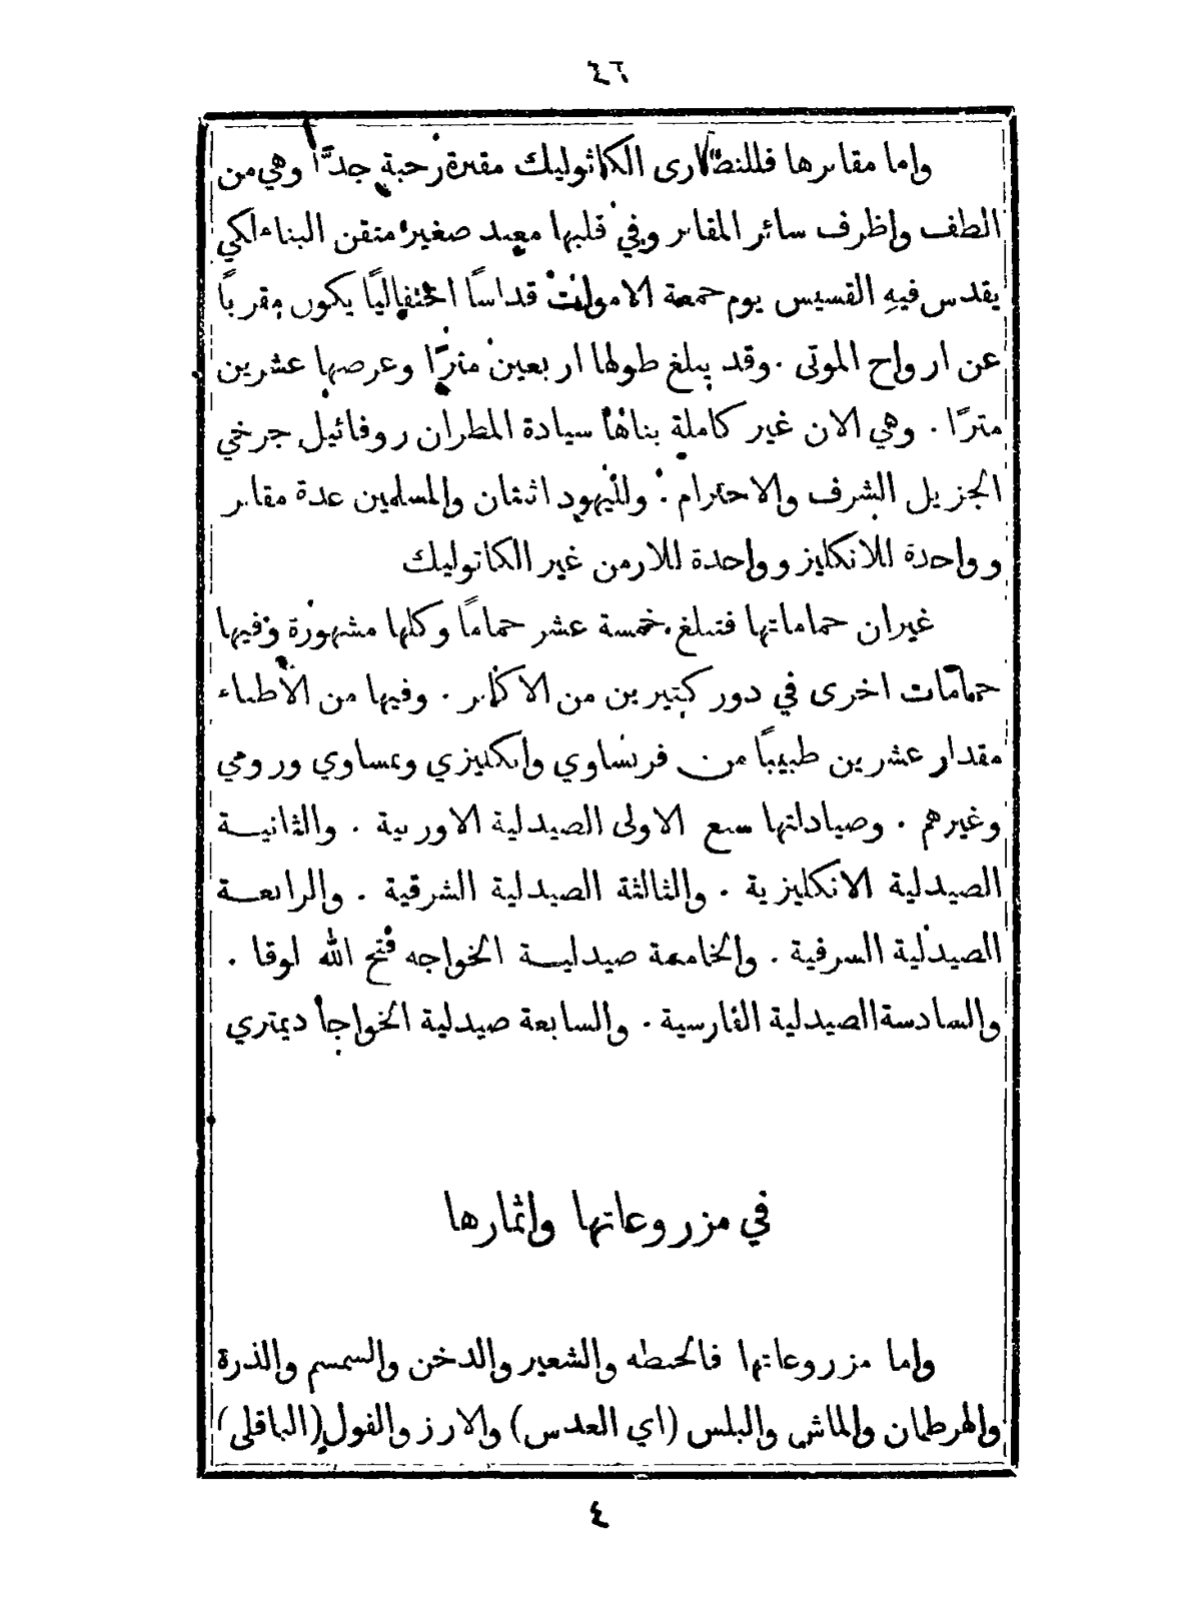 ٤٦
واما مقابرها فللنصارى الكاثوليك مقبرة رحبة جدًّا وهي من
الطف واظرف سائر المقابر وفي قلبها معبد صغير متقن البناء لكي
يقدس فيهِ القسيس يوم جمعة الاموات قداسًا احتفاليًا يكون مقربًا
عن ارواح الموتى . وقد يبلغ طولها اربعين مترًا وعرضها عشرين
مترًا . وهي الان غير كاملة بناها سيادة المطران روفائيل جرخي
الجزيل الشرف والاحترام . ولليهود اثنان وللمسلمين عدة مقابر
وواحدة للانكليز وواحدة للارمن غير الكاتوليك
غيران حماماتها فتبلغ خمسة عشر حمامًا وكلها مشهورة وفيها
حمامات اخرى في دور كتيرين من الاكابر . وفيها من الأطباء
مقدار عشرين طبيبًا من فرنساوي وانكليزي ونمساوي ورومي
وغيرهم . وصيادلتها سبع الاولى الصيدلية الاوربية . والثانيـة
الصيدلية الانكليزية . والثالثة الصيدلية الشرقية . والرابعـة
الصيدلية السرفية . والخامسة صيدليـة الخواجه فتح الله لوقا .
والسادسة الصيدلية الفارسية . والسابعة صيدلية الخواجا ديمتري
في مزروعاتها واثمارها
واما مزروعاتها فالحنطه والشعير والدخن والسمسم والذرة
والهرطمان والماش والبلس (اي العدس) والارز والفول (الباقلى)
٤